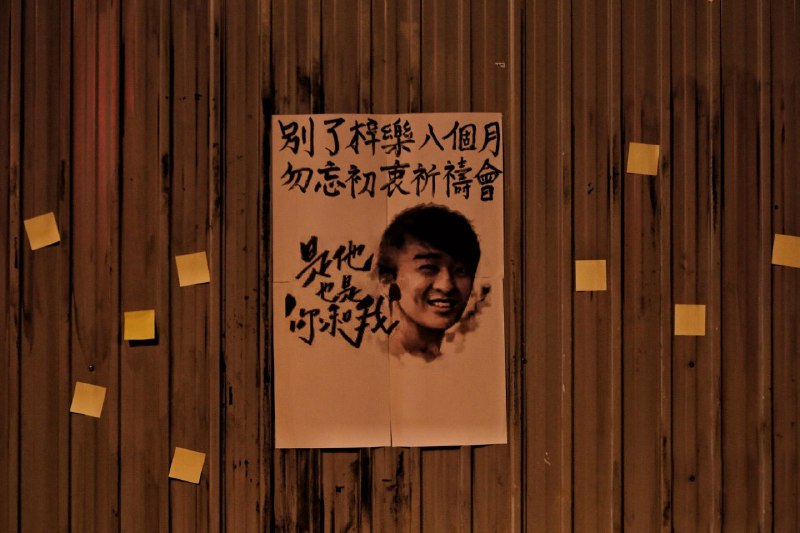 別了梓樂八個月
勿忘初衷祈禱會
是他
也是
你和我